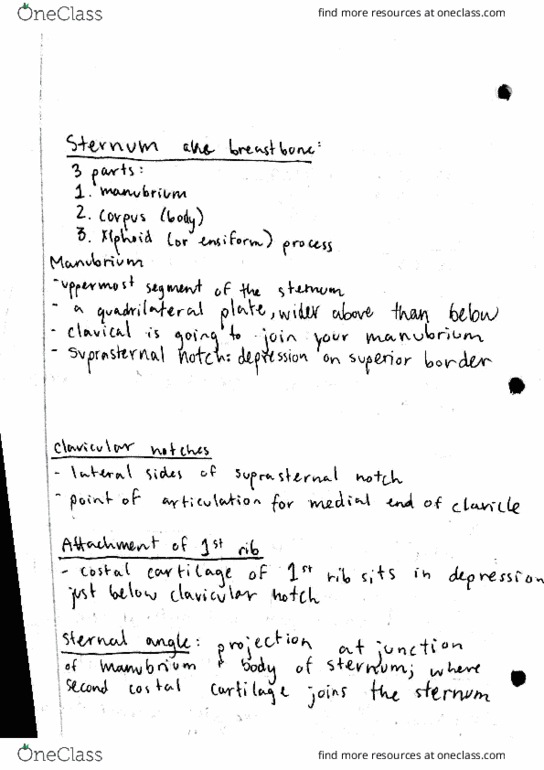 OneClass find more resources at oneclass.com
Sternum aka breastbone:
3 parts:
1. manubrium
2. corpus (body)
3. Xiphoid (or ensiform) process
Manubrium
- uppermost segment of the sternum
- a quadrilateral plate, wider above than below
- clavical is going to join your manubrium
- suprasternal notch: depression on superior border
Clavicular notches
- lateral sides of suprasternal notch
- point of articulation for medial end of clavicle
Attachment of 1st rib
- costal cartilage of 1st rib sits in depression
just below clavicular notch
Sternal angle: projection at junction
of manubrium + body of sternum; where
second costal cartilage joins the sternum
OneClass find more resources at oneclass.com